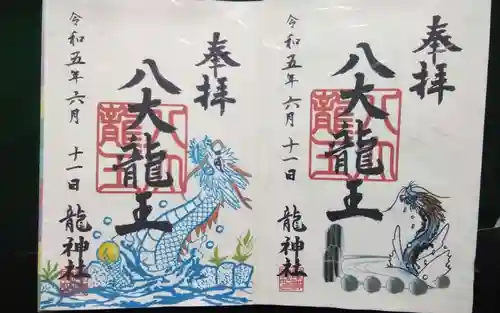 奉拝
八大龍王
令和五年六月 十一日
龍神社
奉拝
八大龍王
令和五年六月 十一日
龍神社